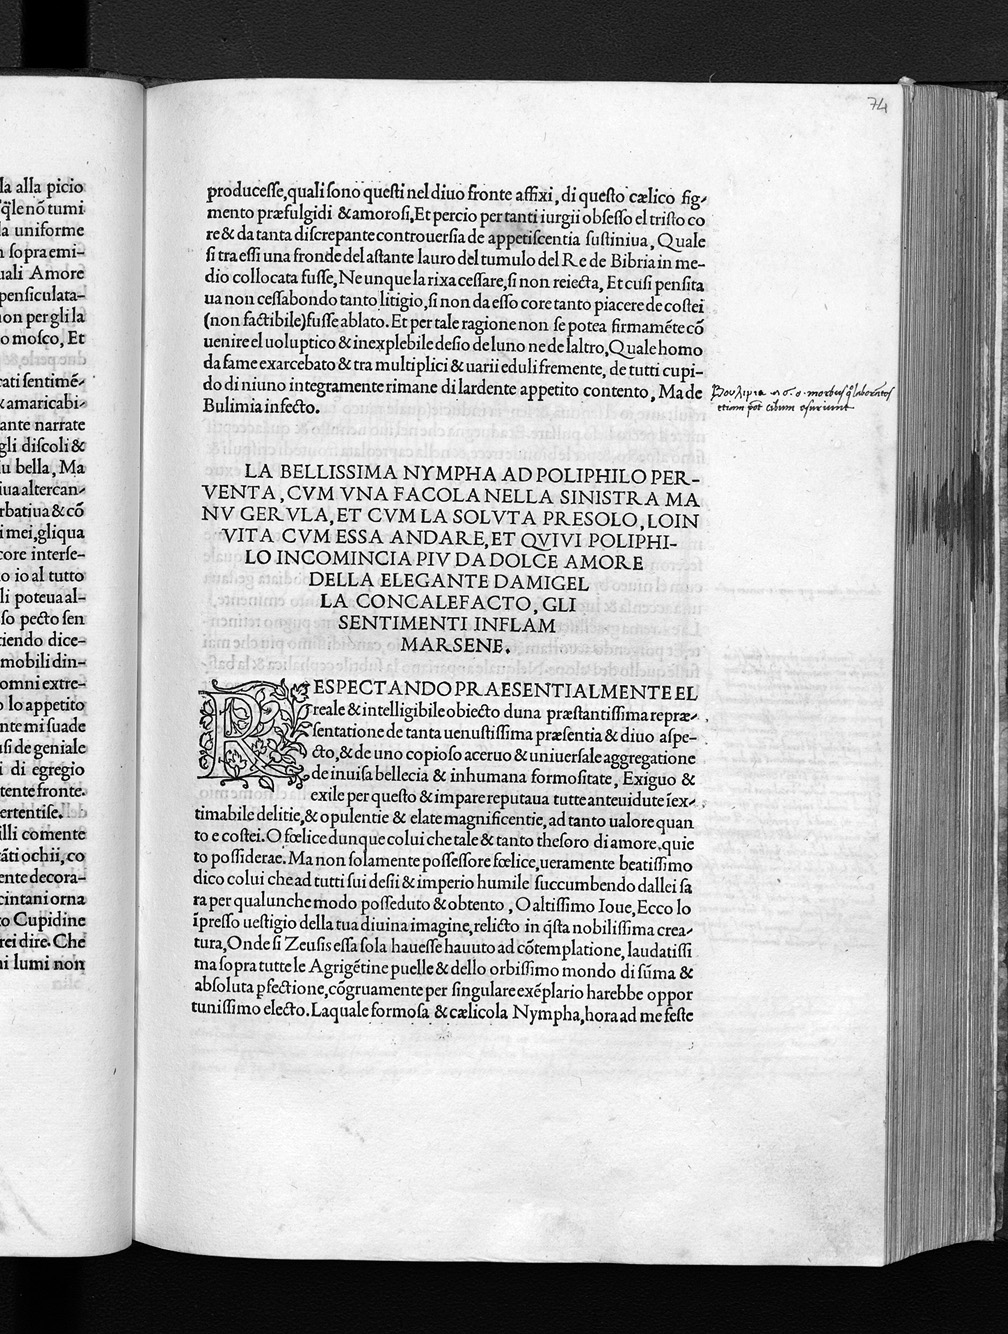 la alla picio
q̃le nõ tumi
la uniforme
sopra emi-
uali Amore
pensiculata-
non per gli la
o mosco, Et
cati sentimẽ-
& amaricabi-
ante narrate
gli discoli &
u bella, Ma
iua altercan-
rbatiua & cõ
i mei, gliqua
core interse-
o io al tutto
li poteua al-
so pecto sen
tiendo dice-
mobili din-
omni extre-
o lo appetito
nte mi suade
usi de geniale
i di egregio
tente fronte.
ertentise.
illi comente
tãti ochii, co
ente decora-
cintani orna
to Cupidine
rei dire. Che
ni lumi non
74
producesse, quali sono questi nel diuo fronte affixi, di questo cælico fig-
mento præfulgidi & amorosi, Et percio per tanti iurgii obsesso el tristo co
re & da tanta discrepante controuersia de appetiscentia sustiniua, Quale
si tra essi una fronde del astante lauro del tumulo del Re de Bibria in me-
dio collocata fusse, Ne unque la rixa cessare, si non reiecta, Et cusi pensita
ua non cessabondo tanto litigio, si non da esso core tanto piacere de costei
(non factibile) fusse ablato. Et per tale ragione non se potea firmamẽte cõ
uenire el uoluptico & inexplebile desio de luno ne de laltro, Quale homo
da fame exarcebato & tra multiplici & uarii eduli fremente, de tutti cupi-
do di niuno integramente rimane di lardente appetito contento, Ma de
Bulimia infecto.
morbus
etiam cibum esuriunt
LA BELLISSIMA NYMPHA AD POLIPHILO PER-
VENTA, CVM VNA FACOLA NELLA SINISTRA MA
NV GERVLA, ET CVM LA SOLVTA PRESOLO, LOIN
VITA CVM ESSA ANDARE, ET QVIVI POLIPHI-
LO INCOMINCIA PIV DA DOLCE AMORE
DELLA ELEGANTE DAMIGEL
LA CONCALEFACTO, GLI
SENTIMENTI INFLAM
MARSENE.
RESPECTANDO PRAESENTIALMENTE EL
reale & intelligibile obiecto duna præstantissima repræ-
sentatione de tanta uenustissima præsentia & diuo aspe-
cto, & de uno copioso aceruo & uniuersale aggregatione
de inuisa bellecia & inhumana formositate, Exiguo &
exile per questo & impare reputaua tutte anteuidute iex-
timabile delitie, & opulentie & elate magnificentie, ad tanto ualore quan
to e costei. O fœlice dunque colui che tale & tanto thesoro di amore, quie
to possiderae. Ma non solamente possessore fœlice, ueramente beatissimo
dico colui che ad tutti sui desii & imperio humile succumbendo dallei sa
ra per qualunche modo posseduto & obtento, O altissimo Ioue, Ecco lo
ĩpresso uestigio della tua diuina imagine, relicto in q̃sta nobilissima crea-
tura, Onde si Zeusis essa sola hauesse hauuto ad cõtemplatione, laudatissi
ma sopra tutte le Agrigẽtine puelle & dello orbissimo mondo di sũma &
absoluta ꝑfectione, cõgruamente per singulare exẽplario harebbe oppor
tunissimo electo. Laquale formosa & cælicola Nympha, hora ad me feste